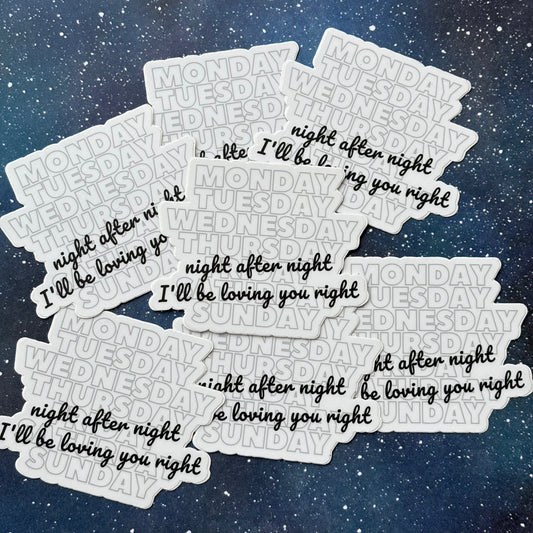 MONDAY
TUESDAY
WEDNESDAY
after
MONDAY
TUESDAY
WEDNESDAY
THURSDAY
night after night
I'll be loving you right
MONDAY
TUESDAY
WEDNESDAY
THURSDAY
night after night
I'll be loving you
SUNDAY
MONDAY
TUESDAY
WEDNESDAY
THURSDAY
night after night
I'll be loving you right
SUNDAY
MONDAY
TUESDAY
WEDNESDAY
THURSDAY
after night
be loving you right
SUNDAY
WEDNESDAY
THURSDAY
night after night
be loving you right
SUNDAY
MONDAY
TUESDAY
WEDNESDAY
THURSDAY
night after night
I'll be loving you right
SUNDAY